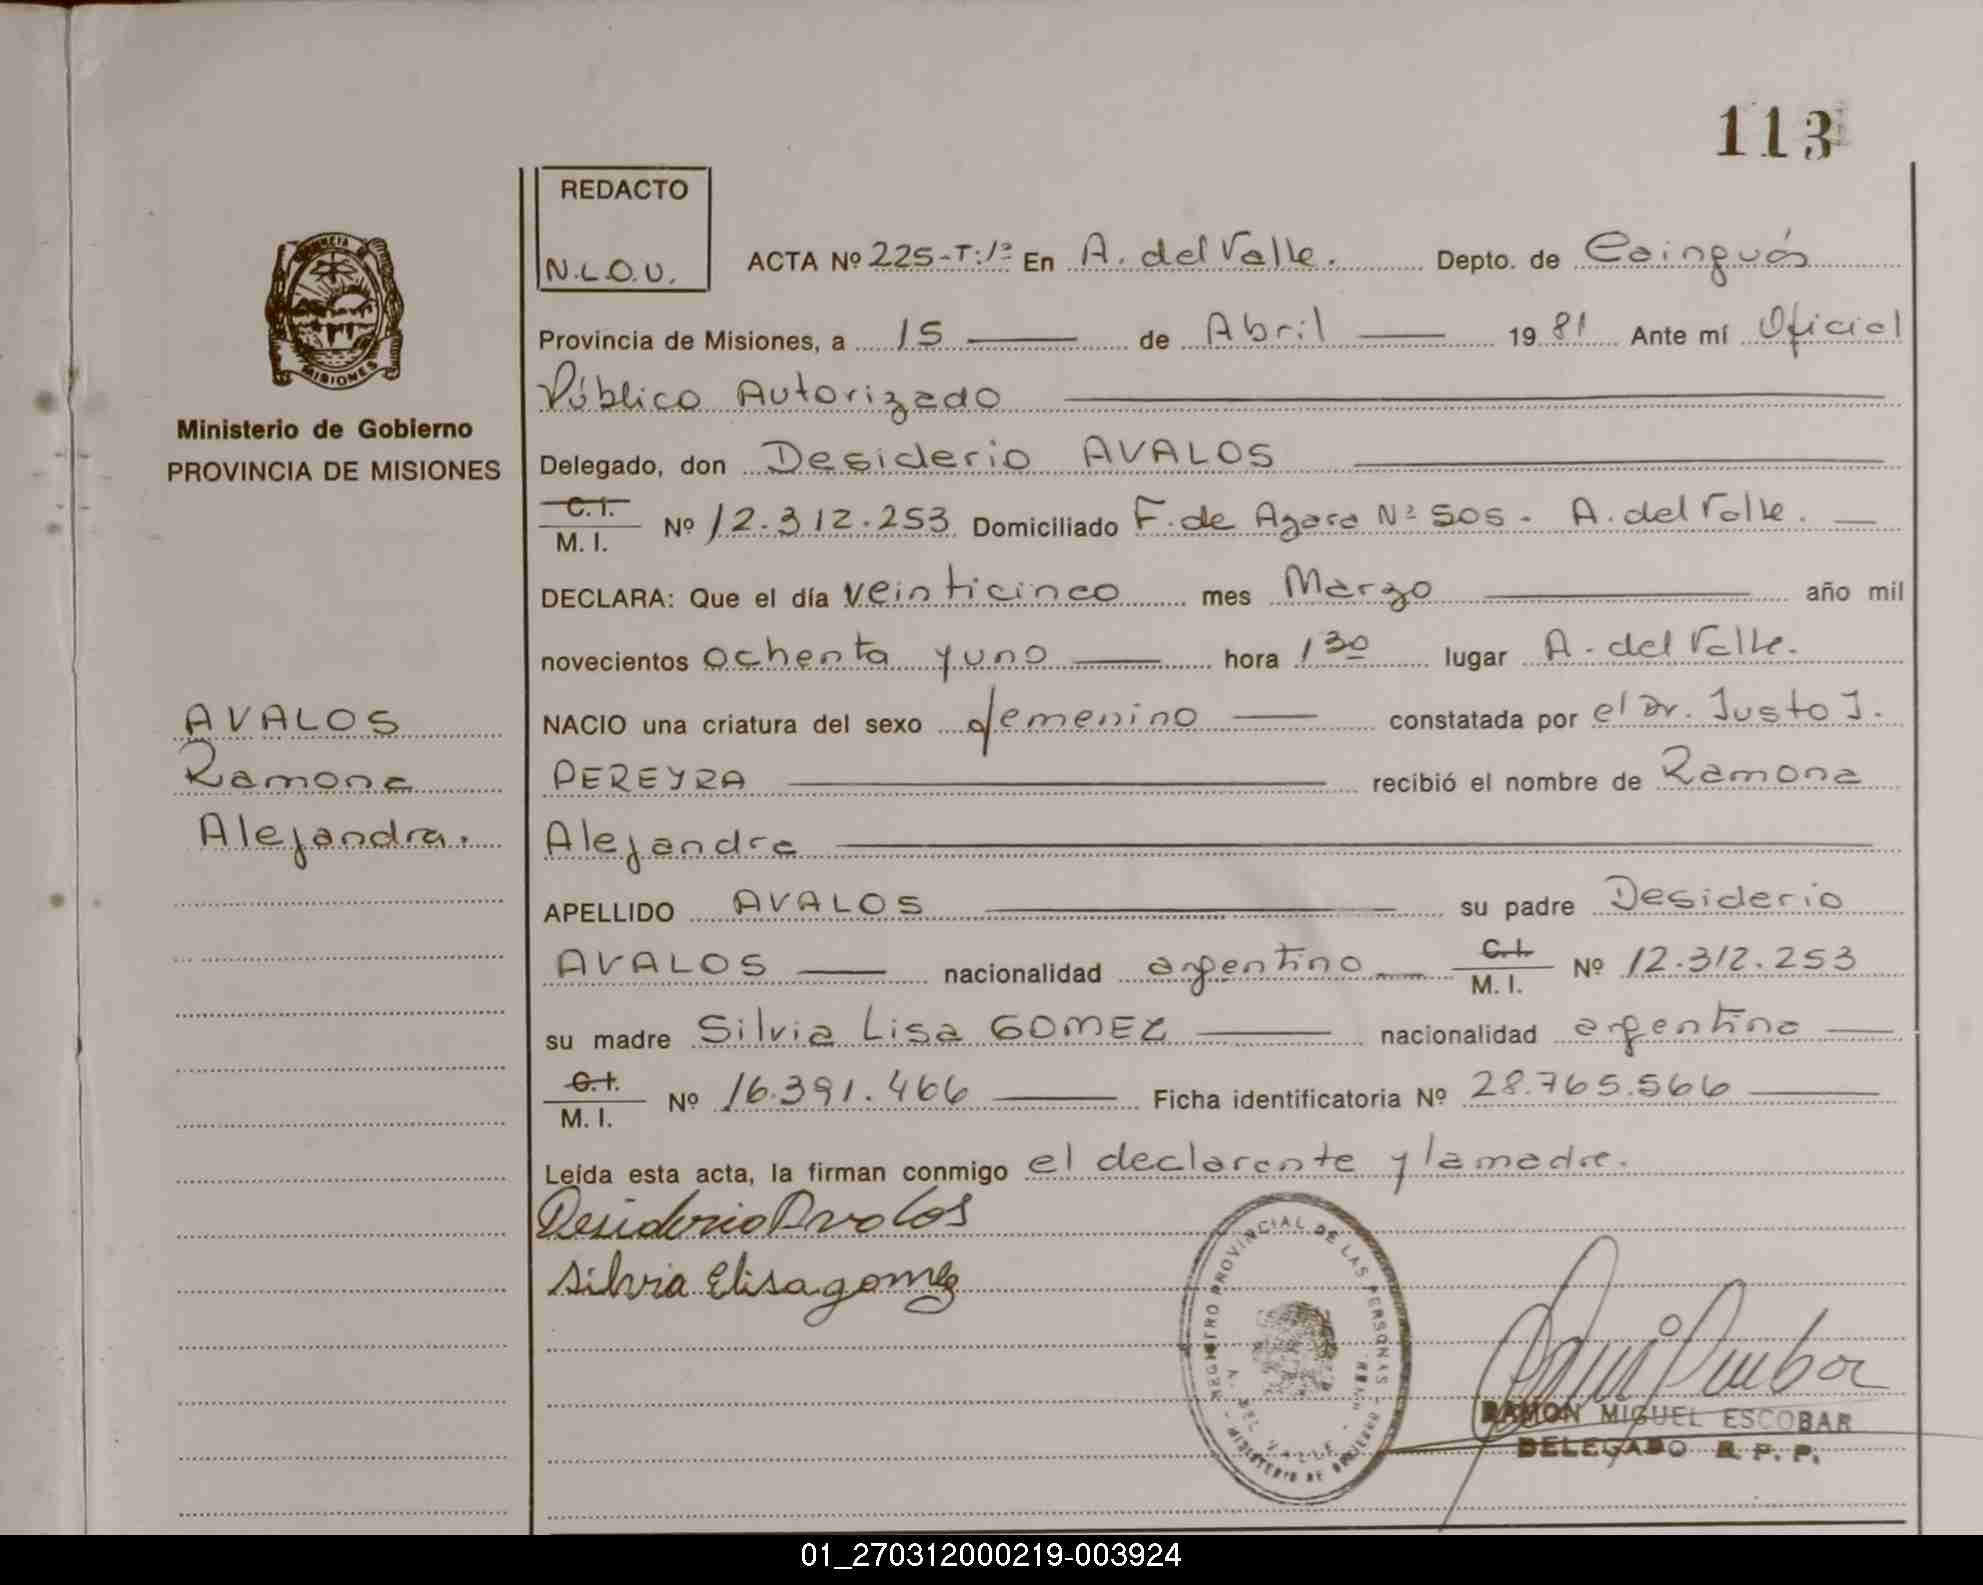 113
REDACTO
N.L.O.U.
ACTA Nº 225-T:1º En A. del Valle. Depto. de Cainguás
Provincia de Misiones, a 15 de Abril 1981 Ante mí Oficial
Público Autorizado
Delegado, don Desiderio AVALOS
C. I.
M. I. Nº 12.312.253 Domiciliado F. de Azara Nº 505 - A. del Valle.
DECLARA: Que el día veinticinco mes Marzo año mil
novecientos ochenta y uno hora 1 30 lugar A. del Valle.
NACIO una criatura del sexo femenino constatada por el Dr. Justo J.
PEREYRA recibió el nombre de Ramona
Alejandra
APELLIDO AVALOS su padre Desiderio
AVALOS nacionalidad argentino C. I.
M. I. Nº 12.312.253
su madre Silvia Lisa GOMEZ nacionalidad argentina
C. I.
M. I. Nº 16.391.466 Ficha identificatoria Nº 28.765.566
Leída esta acta, la firman conmigo el declarante y la madre.
Desiderio Avalos
Silvia Elisa gomez
REGISTRO PROVINCIAL DE LAS PERSONAS
A. DEL VALLE
MINISTERIO DE GOBIERNO
RAMON MIGUEL ESCOBAR
DELEGADO R. P. P.
PROVINCIA
MISIONES
Ministerio de Gobierno
PROVINCIA DE MISIONES
AVALOS
Ramona
Alejandra.
01_270312000219-003924